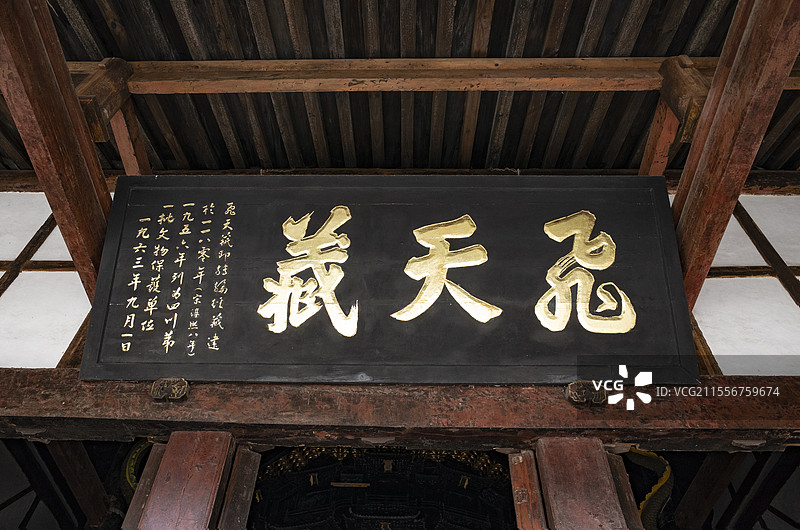 飛天藏
飛天藏即转轮经藏建
於一一八零年(宋淳熙八年)
一九五六年列为四川第
一批文物保護单位
一九六三年九月一日
VCG
VCG ID:VCG211556759674